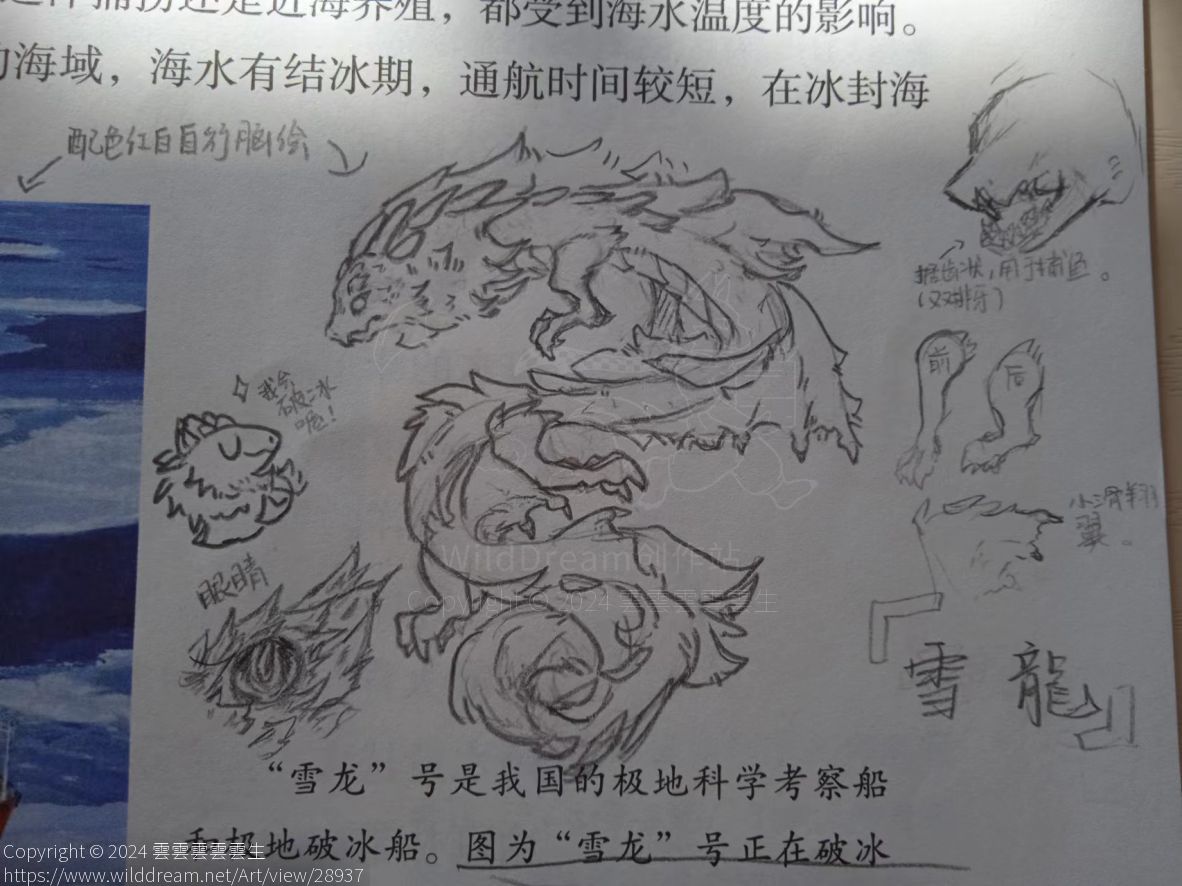 这种捕捞还是近海养殖，都受到海水温度的影响。
的海域，海水有结冰期，通航时间较短，在冰封海
配色红白自行脑绘
锯齿状，用于捕鱼。
（双排牙）
前
后
我会
破冰
喔！
小滑翔
翼。
眼睛
『雪龍』
WildDream创作站
Copyright © 2024 雲雲雲雲雲生
“雪龙”号是我国的极地科学考察船
和极地破冰船。图为“雪龙”号正在破冰
Copyright © 2024 雲雲雲雲雲生
https://www.wilddream.net/Art/view/28937